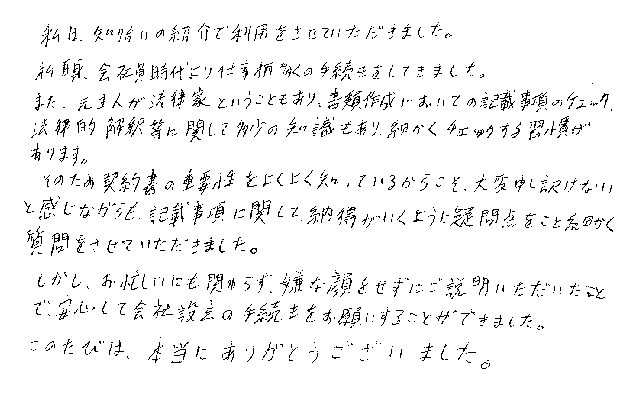 私は、知り合いの紹介で利用をさせていただきました。
私自身、会社員時代より仕事柄多くの手続きをしてきました。
また、元主人が法律家ということもあり、書類作成においての記載事項のチェック、
法律的解釈等に関して多少の知識もあり、細かくチェックする習慣が
あります。
そのため契約書の重要性をよくよく知っているからこそ、大変申し訳けない
と感じながらも、記載事項に関して、納得がいくように疑問点をこと細かく
質問をさせていただきました。
しかし、お忙しいにも関わらず、嫌な顔をせずにご説明いただいたこと
で、安心して会社設立の手続きをお願いすることができました。
このたびは、本当にありがとうございました。